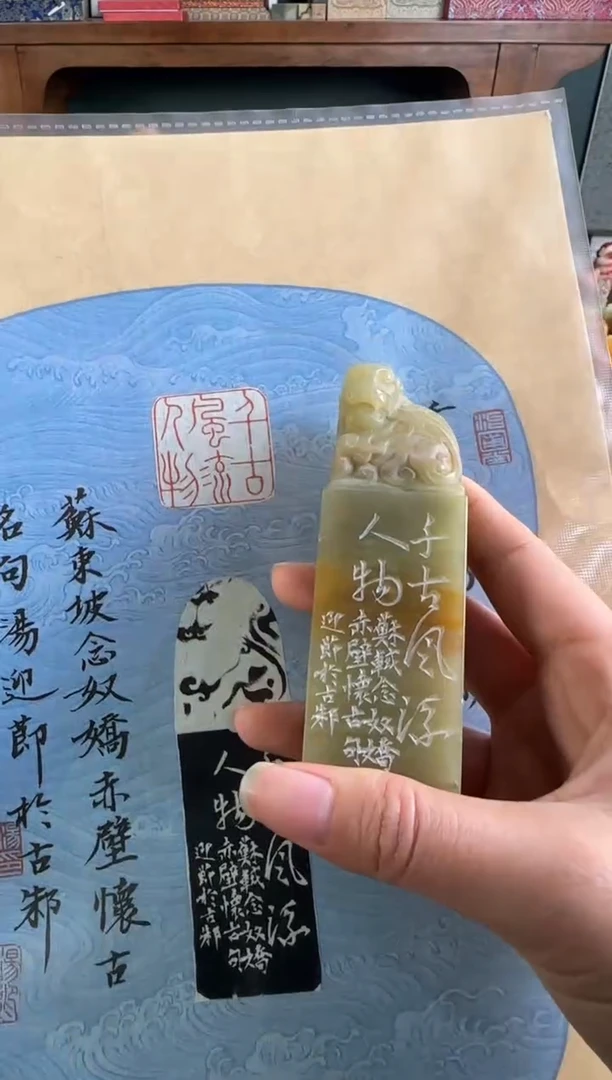 千古
風流
人物
千古风流
人物
蘇軾念奴嬌
赤壁懷古句
迎節於古邾
蘇東坡念奴嬌赤壁懷古
名句湯迎節於古邾
风流
人物
蘇軾念奴嬌
赤壁懷古句
迎節於古邾